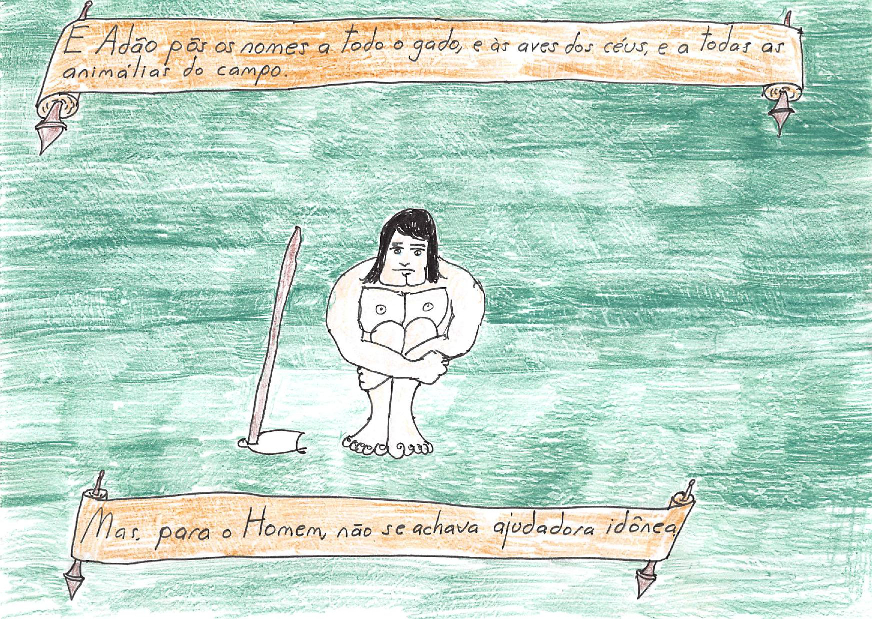 E Adão pôs os nomes a todo o gado, e às aves dos céus, e a todas as
animálias do campo.
Mas, para o Homem, não se achava ajudadora idônea,